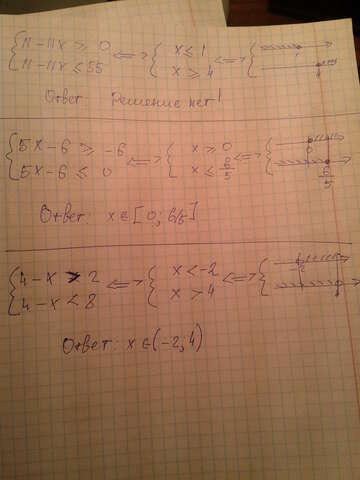 { 11-11x ⩾ 0 <=> { x ≤ 1 <=> {
{ 11-11x ≤ 55 { x ⩾ 4 1 4
Ответ: Решение нет!
{ 5x-6 ⩾ -6 <=> { x ⩾ 0 <=> { 0
{ 5x-6 ≤ 0 { x ≤ 6/5 6/5
Ответ: x ∈ [0; 6/5]
{ 4-x > 2 <=> { x < -2 <=> { -2
{ 4-x < 8 { x > 4
Ответ: x ∈ (-2; 4)